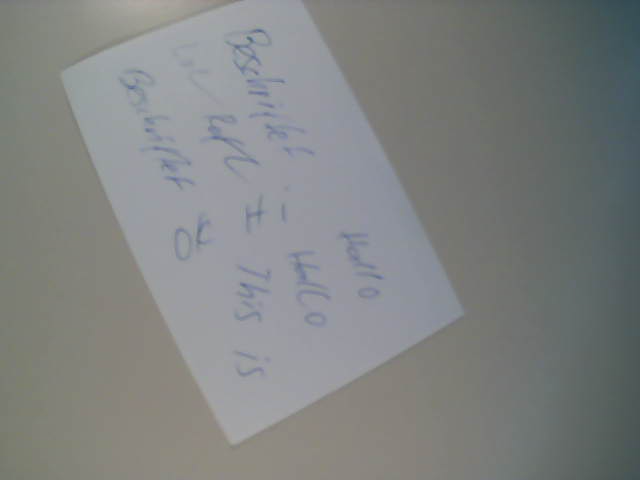 Hallo
Beschriftet :- Hallo
I This is
Beschriftet